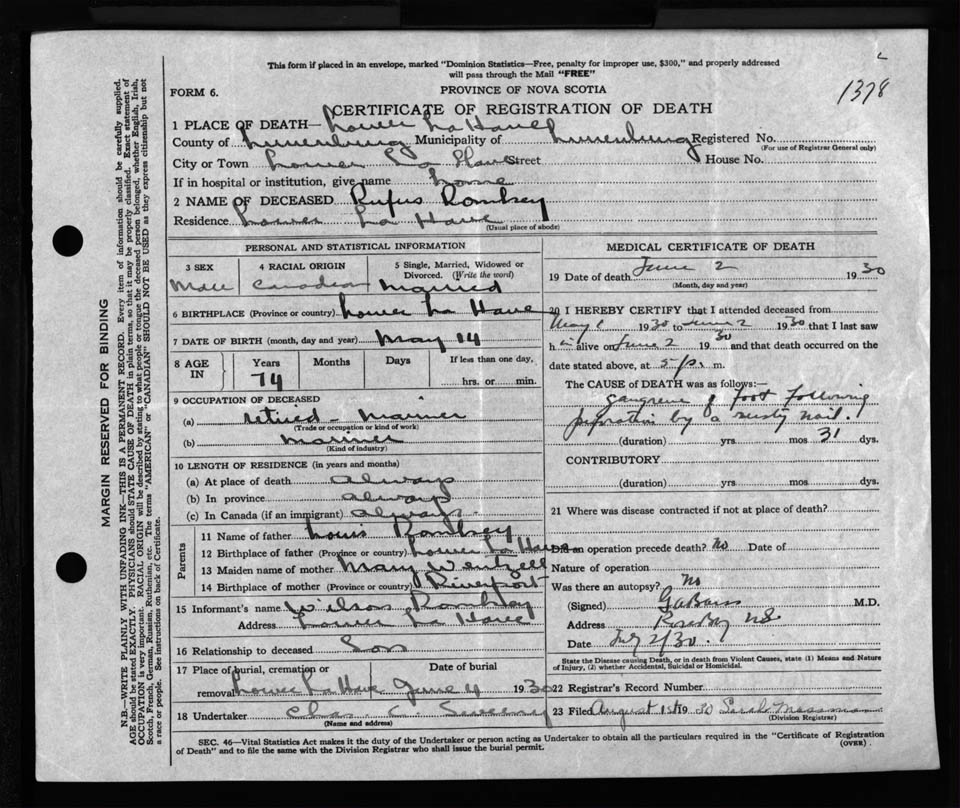 This form if placed in an envelope, marked "Dominion Statistics—Free, penalty for improper use, $300," and properly addressed
will pass through the Mail "FREE"
1378
FORM 6.
PROVINCE OF NOVA SCOTIA
CERTIFICATE OF REGISTRATION OF DEATH
1 PLACE OF DEATH— Lower La Have
County of Lunenburg Municipality of Lunenburg Registered No.
(For use of Registrar General only)
City or Town Lower La Have Street House No.
If in hospital or institution, give name home
2 NAME OF DECEASED Rufus Romkey
Residence Lower La Have
(Usual place of abode)
PERSONAL AND STATISTICAL INFORMATION
3 SEX
Male
4 RACIAL ORIGIN
Canadian
5 Single, Married, Widowed or
Divorced. (Write the word)
Married
6 BIRTHPLACE (Province or country) Lower La Have
7 DATE OF BIRTH (month, day and year) May 14
8 AGE
IN
Years
74
Months
Days
If less than one day,
hrs. or min.
9 OCCUPATION OF DECEASED
(a) retired - Mariner
(Trade or occupation or kind of work)
(b) Mariner
(Kind of industry)
10 LENGTH OF RESIDENCE (in years and months)
(a) At place of death always
(b) In province always
(c) In Canada (if an immigrant) always
Parents
11 Name of father Louis Romkey
12 Birthplace of father (Province or country) Lower La Have
13 Maiden name of mother Mary Wentzell
14 Birthplace of mother (Province or country) Riverport
15 Informant's name Wilson Romkey
Address Lower La Have
16 Relationship to deceased Son
17 Place of burial, cremation or
removal Lower La Have
Date of burial
June 4 1930
18 Undertaker Chas C. Sweeny
(Name and address)
MEDICAL CERTIFICATE OF DEATH
19 Date of death June 2 1930
(Month, day and year)
20 I HEREBY CERTIFY that I attended deceased from
May 1930 to June 2 1930 that I last saw
h im alive on June 2 1930 and that death occurred on the
date stated above, at 5 p. m.
The CAUSE of DEATH was as follows:—
Gangrene of foot following
perforation by a rusty nail.
(duration) yrs mos 31 dys.
CONTRIBUTORY
(duration) yrs. mos. dys.
21 Where was disease contracted if not at place of death?
Did an operation precede death? No Date of
Nature of operation
Was there an autopsy? No
(Signed) M.D.
Address Rose Bay NS
Date 2/30.
State the Disease causing Death, or in death from Violent Causes, state (1) Means and Nature
of Injury, (2) whether Accidental, Suicidal or Homicidal.
22 Registrar's Record Number
23 Filed August 1st 1930 Mossman
(Division Registrar)
SEC. 46—Vital Statistics Act makes it the duty of the Undertaker or person acting as Undertaker to obtain all the particulars required in the "Certificate of Registration
of Death" and to file the same with the Division Registrar who shall issue the burial permit.
(OVER)
MARGIN RESERVED FOR BINDING
N.B.—WRITE PLAINLY WITH UNFADING INK—THIS IS A PERMANENT RECORD. Every item of information should be carefully supplied.
AGE should be stated EXACTLY. PHYSICIANS should STATE CAUSE OF DEATH in plain terms, so that it may be properly classified. Exact statement of
OCCUPATION is very important. RACIAL ORIGIN will be described by stating to what people or tongue the deceased person belonged, whether English, Irish,
Scotch, French, German, Russian, Ruthenian, etc. The terms "AMERICAN" or "CANADIAN" SHOULD NOT BE USED as they express citizenship but not
a race or people. See instructions on back of Certificate.